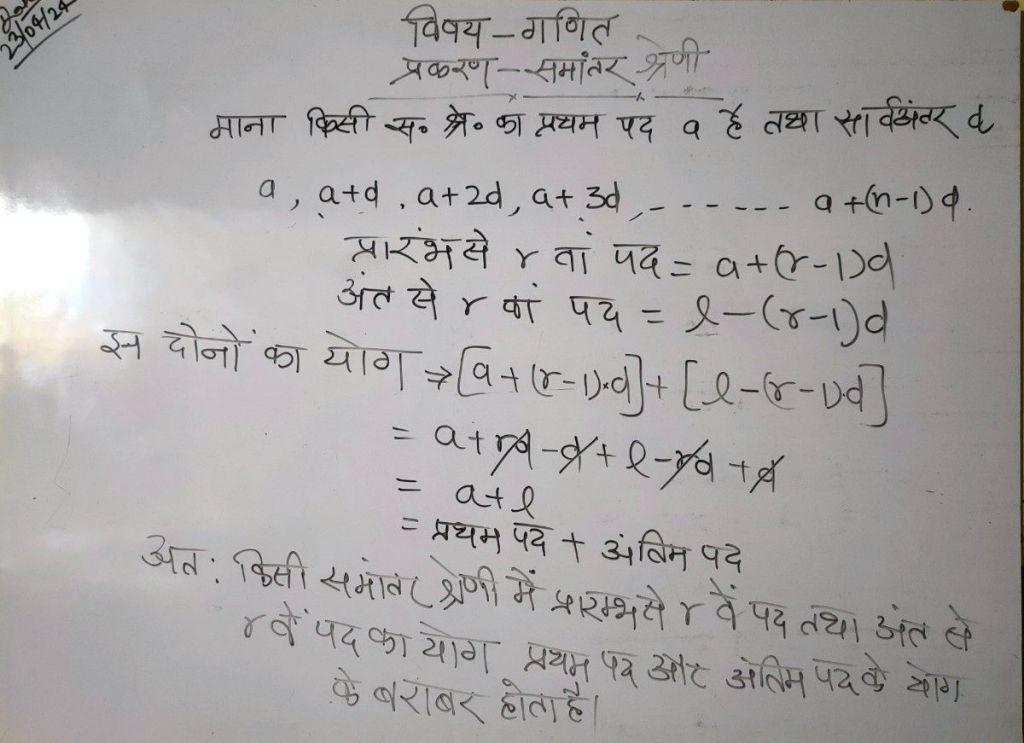 23/04/24
विषय – गणित
प्रकरण – समांतर श्रेणी
माना किसी स॰ श्रे॰ का प्रथम पद a है तथा सार्वअंतर d
a, a+d, a+2d, a+3d, - - - - - - - a+(n-1)d.
प्रारंभ से r वां पद = a+(r-1)d
अंत से r वां पद = l-(r-1)d
इन दोनों का योग ⇒ [a+(r-1)×d]+[l-(r-1).d]
= a+rd-d+l-rd+d
= a+l
= प्रथम पद + अंतिम पद
अत: किसी समांतर श्रेणी में प्रारम्भ से r वें पद तथा अंत से
r वें पद का योग प्रथम पद और अंतिम पद के योग
के बराबर होता है।